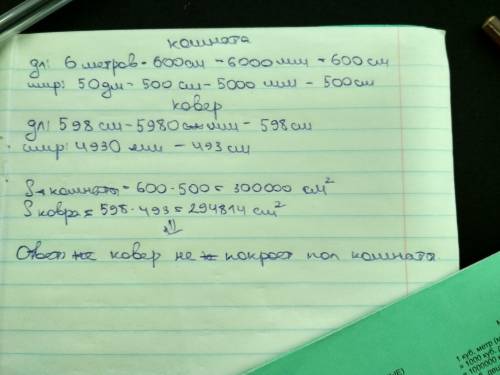 комната
дл: 6 метров - 600см - 6000мм - 600см
шир: 50дм - 500см - 5000 мм - 500см
ковер
дл: 598 см - 5980 мм - 598см
шир: 4930 мм - 493 см
S комнаты = 600 · 500 = 300000 см²
S ковра = 598 · 493 = 294814 см²
⇓
Ответ: ковер не покроет пол комната
1 куб. метр
= 1000 куб.
= 1000000